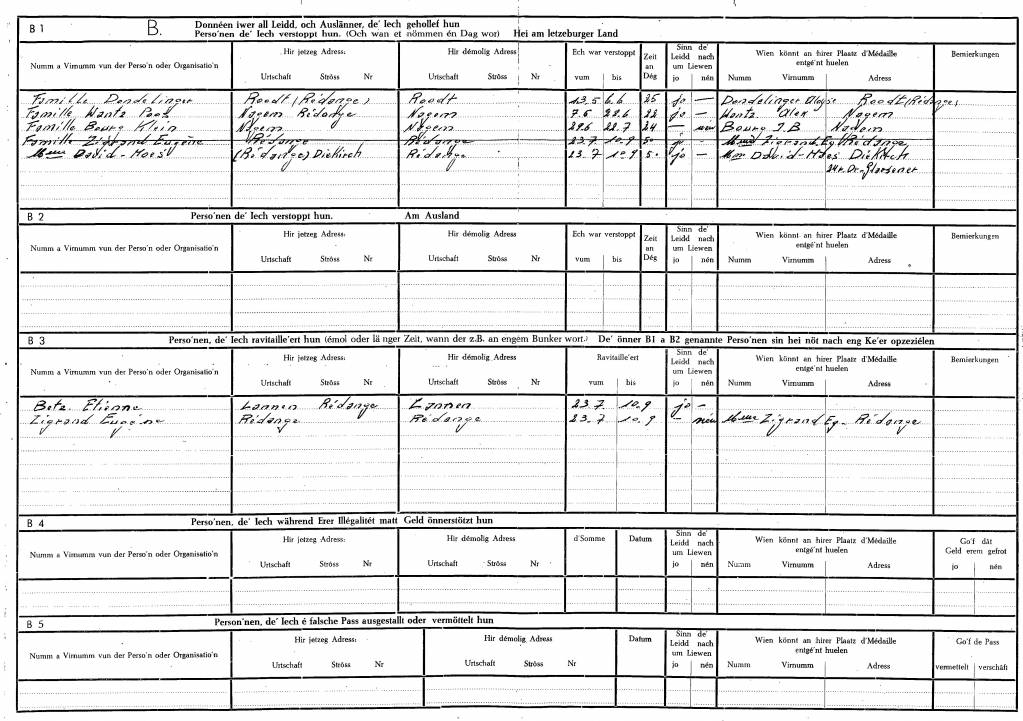 B 1 B. Donnéen iwer all Leidd, och Auslänner, de' Iech gehollef hun
Perso'nen de' Iech verstoppt hun. (Och wan et nömmen én Dag wor) Hei am letzeburger Land
Numm a Virnumm vun der Perso'n oder Organisatio'n Hir jetzeg Adress: Urtschaft Ströss Nr Hir démolig Adress: Urtschaft Ströss Nr Ech war verstoppt vum bis Zeit an Dég Sinn de' Leidd nach um Liewen jo nén Wien könnt an hirer Plaatz d'Médaille entgé'nt huelen Numm Virnumm Adress Bemierkungen
Famille Dendelinger Roodt (Rédange) Roodt 13.5 6.6 25 jo — Dendelinger Aloyse Roodt (Rédange)
Famille Wantz Nagem Rédange Nagem 7.6 28.6 22 jo — Wantz Alex Nagem
Famille Bourg Klein Nagem Nagem 29.6 22.7 24 — nén Bourg J.B Nagem
Famille Zigrand Eugène Rédange Rédange 23.7 10.9 50 jo — Mme Zigrand Eg Rédange
Mme David-Hoes (Rédange) Diekirch Rédange 23.7 10.9 50 jo — Mme David-Hoes Diekirch
B 2 Perso'nen de' Iech verstoppt hun. Am Ausland
Numm a Virnumm vun der Perso'n oder Organisatio'n Hir jetzeg Adress: Urtschaft Ströss Nr Hir démolig Adress Urtschaft Ströss Nr Ech war verstoppt vum bis Zeit an Dég Sinn de' Leidd nach um Liewen jo nén Wien könnt an hirer Plaatz d'Médaille entgé'nt huelen Numm Virnumm Adress Bemierkungen
B 3 Perso'nen, de' Iech ravitaille'ert hun (émol oder länger Zeit, wann der z.B. an engem Bunker wort.) De' önner B1 a B2 genannte Perso'nen sin hei nöt nach eng Ke'er opzeziélen
Numm a Virnumm vun der Perso'n oder Organisatio'n Hir jetzeg Adress: Urtschaft Ströss Nr Hir démolig Adress: Urtschaft Ströss Nr Ravitaille'ert vum bis Sinn de' Leidd nach um Liewen jo nén Wien könnt an hirer Plaatz d'Médaille entgé'nt huelen Numm Virnumm Adress Bemierkungen
Betz Etienne Lannen Rédange Lannen 23.7 10.9 jo —
Zigrand Eugène Rédange Rédange 23.7 10.9 — nén Mme Zigrand Eg. Rédange
B 4 Perso'nen, de' Iech während Erer Illégalitét matt Geld önnerstötzt hun
Numm a Virnumm vun der Perso'n oder Organisatio'n Hir jetzeg Adress: Urtschaft Ströss Nr Hir démolig Adress Urtschaft Ströss Nr d'Somme Datum Sinn de' Leidd nach um Liewen jo nén Wien könnt an hirer Plaatz d'Médaille entgé'nt huelen Numm Virnumm Adress Go'f dât Geld erem gefrot jo nén
B 5 Person'nen, de' Iech é falsche Pass ausgestallt oder vermöttelt hun
Numm a Virnumm vun der Perso'n oder Organisatio'n Hir jetzeg Adress: Urtschaft Ströss Nr Hir démolig Adress: Urtschaft Ströss Nr Datum Sinn de' Leidd nach um Liewen jo nén Wien könnt an hirer Plaatz d'Médaille entgé'nt huelen Numm Virnumm Adress Go'f de Pass vermettelt verschâft